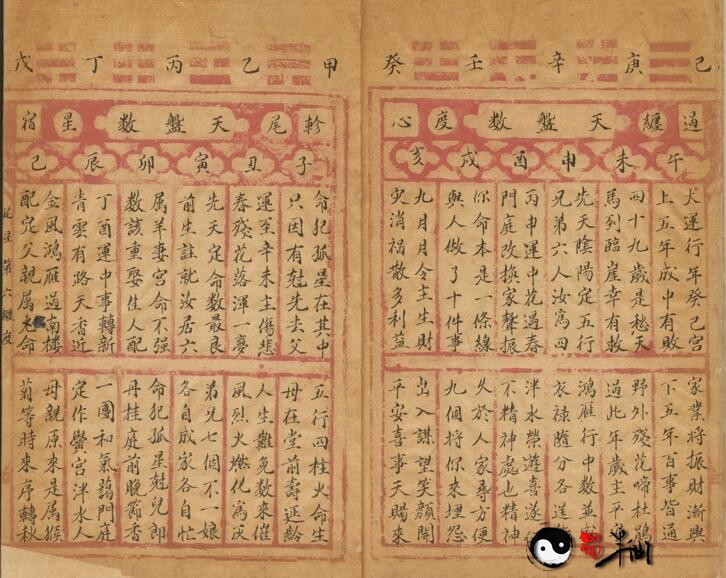 己庚辛壬癸
過纏天盤數度心
午未申酉戌亥
犬運行年癸己宮
上五年成中有敗
四十九歲是愁天
馬列臨崖幸有救
先天陰陽定五行
兄弟六人汝爲四
丙申運中花過春
門庭改換家聲振
你命本是一條線
與人做了十件事
九月月令主生財
灾消禍散多利益
家業將振財漸興
下五年百事皆通
野外殘花啼杜鵑
過此年歲主平
鴻雁行中數並
衣祿隨分各
泮水榮遊喜遂
不精神處也精神
失於人家尋方便
九個將你來埋怨
出入謀望笑顔開
平安喜事天賜來
甲乙丙丁戊
軫尾天盤數星宿
子丑寅卯辰巳
命犯孤星在其中
只因有尅先去父
運至辛未主傷悲
春殘花落渾一夢
先天定命數最良
前生註就汝居六
属羊妻宮命不强
數該重娶佳人配
丁酉運中事轉新
青雲有路天香近
金風鴻雁過南樓
配定父親属命
五行四柱火命生
母在堂前壽延齡
人生難免數來催
風烈火燃化爲灰
弟兄七個不一娘
各自成家各自忙
命犯孤星尅兒郎
丹桂庭前晚節香
一團和氣藹門庭
定作黌宮泮水人
母親原來是属猴
菊等時來序轉秋
星第六纏度